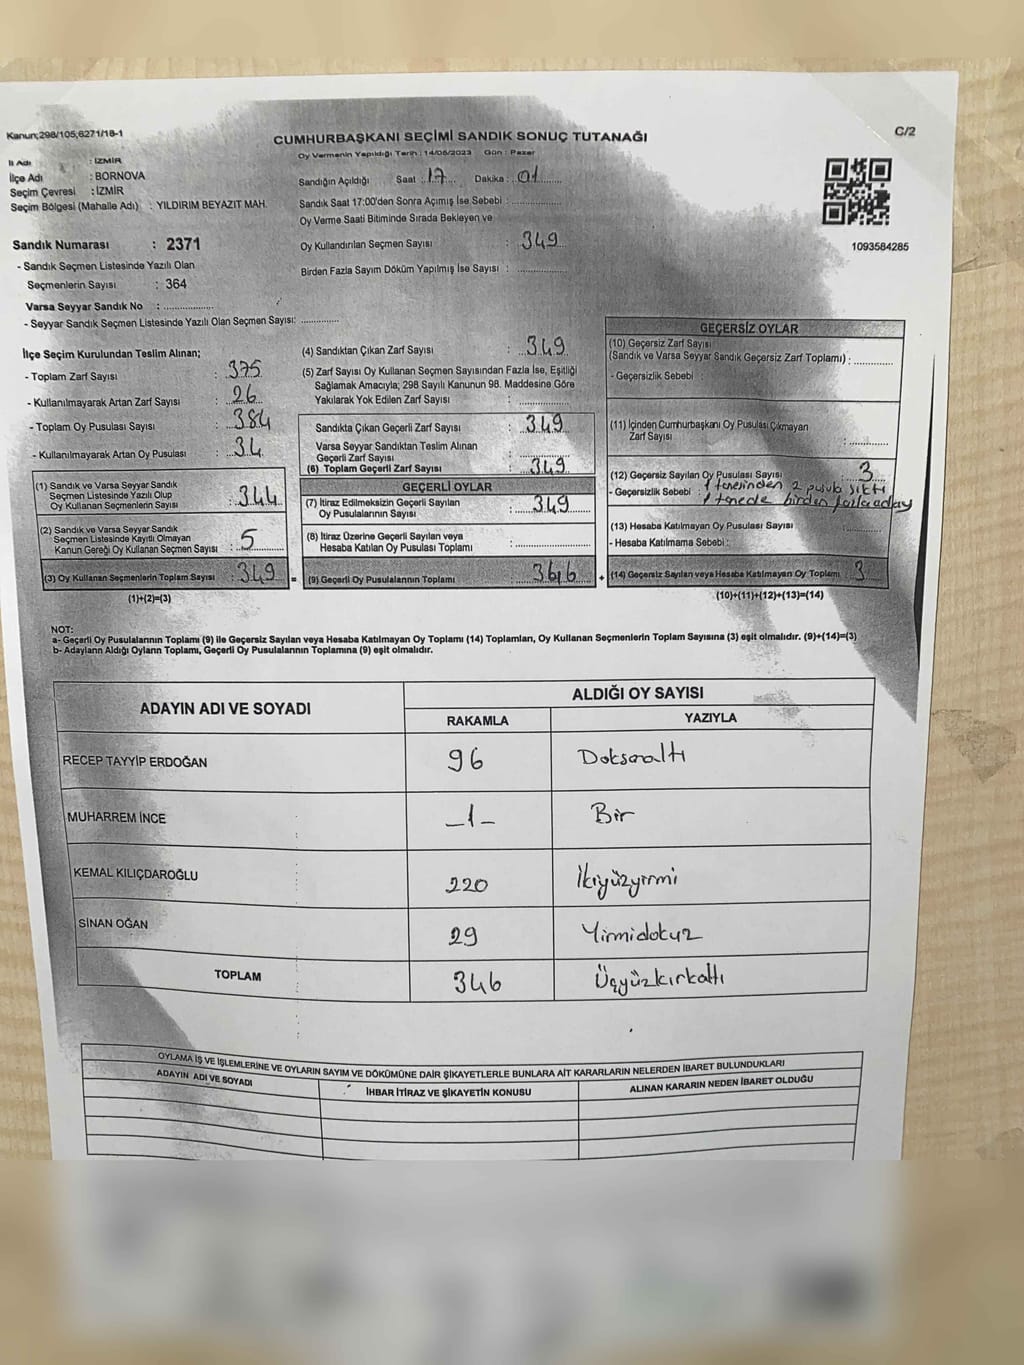 Kanun;298/105,6271/18-1
C/2
CUMHURBAŞKANI SEÇİMİ SANDIK SONUÇ TUTANAĞI
Oy Vermenin Yapıldığı Tarih : 14/05/2023 Gün : Pazar
İl Adı : İZMİR
İlçe Adı : BORNOVA
Seçim Çevresi : İZMİR
Seçim Bölgesi (Mahalle Adı) : YILDIRIM BEYAZIT MAH.
Sandığın Açıldığı Saat : 17 Dakika : 01
Sandık Saat 17:00'den Sonra Açımış İse Sebebi :
Oy Verme Saati Bitiminde Sırada Bekleyen ve
Oy Kullandırılan Seçmen Sayısı : 349
Birden Fazla Sayım Döküm Yapılmış İse Sayısı :
1093584285
Sandık Numarası : 2371
- Sandık Seçmen Listesinde Yazılı Olan
Seçmenlerin Sayısı : 364
Varsa Seyyar Sandık No :
- Seyyar Sandık Seçmen Listesinde Yazılı Olan Seçmen Sayısı:
İlçe Seçim Kurulundan Teslim Alınan;
- Toplam Zarf Sayısı : 375
- Kullanılmayarak Artan Zarf Sayısı : 26
- Toplam Oy Pusulası Sayısı : 384
- Kullanılmayarak Artan Oy Pusulası : 34
(1) Sandık ve Varsa Seyyar Sandık
Seçmen Listesinde Yazılı Olup
Oy Kullanan Seçmenlerin Sayısı : 344
(2) Sandık ve Varsa Seyyar Sandık
Seçmen Listesinde Kayıtlı Olmayan
Kanun Gereği Oy Kullanan Seçmen Sayısı : 5
(3) Oy Kullanan Seçmenlerin Toplam Sayısı : 349
(1)+(2)=(3)
(4) Sandıktan Çıkan Zarf Sayısı : 349
(5) Zarf Sayısı Oy Kullanan Seçmen Sayısından Fazla İse, Eşitliği
Sağlamak Amacıyla; 298 Sayılı Kanunun 98. Maddesine Göre
Yakılarak Yok Edilen Zarf Sayısı :
Sandıkta Çıkan Geçerli Zarf Sayısı : 349
Varsa Seyyar Sandıktan Teslim Alınan
Geçerli Zarf Sayısı :
(6) Toplam Geçerli Zarf Sayısı : 349
GEÇERLİ OYLAR
(7) İtiraz Edilmeksizin Geçerli Sayılan
Oy Pusulalarının Sayısı : 349
(8) İtiraz Üzerine Geçerli Sayılan veya
Hesaba Katılan Oy Pusulası Toplamı :
= (9) Geçerli Oy Pusulalarının Toplamı : 346
GEÇERSİZ OYLAR
(10) Geçersiz Zarf Sayısı
(Sandık ve Varsa Seyyar Sandık Geçersiz Zarf Toplamı) :
- Geçersizlik Sebebi :
(11) İçinden Cumhurbaşkanı Oy Pusulası Çıkmayan
Zarf Sayısı :
(12) Geçersiz Sayılan Oy Pusulası Sayısı : 3
- Geçersizlik Sebebi : 1 tanesinden 2 pusula çıktı
1 tanede birden fazla aday
(13) Hesaba Katılmayan Oy Pusulası Sayısı :
- Hesaba Katılmama Sebebi :
+ (14) Geçersiz Sayılan veya Hesaba Katılmayan Oy Toplamı : 3
(10)+(11)+(12)+(13)=(14)
NOT:
a- Geçerli Oy Pusulalarının Toplamı (9) ile Geçersiz Sayılan veya Hesaba Katılmayan Oy Toplamı (14) Toplamları, Oy Kullanan Seçmenlerin Toplam Sayısına (3) eşit olmalıdır. (9)+(14)=(3)
b- Adayların Aldığı Oyların Toplamı, Geçerli Oy Pusulalarının Toplamına (9) eşit olmalıdır.
ADAYIN ADI VE SOYADI
ALDIĞI OY SAYISI
RAKAMLA YAZIYLA
RECEP TAYYİP ERDOĞAN 96 Doksanaltı
MUHARREM İNCE -1- Bir
KEMAL KILIÇDAROĞLU 220 İkiyüzyirmi
SİNAN OĞAN 29 Yirmidokuz
TOPLAM 346 Üçyüzkırkaltı
OYLAMA İŞ VE İŞLEMLERİNE VE OYLARIN SAYIM VE DÖKÜMÜNE DAİR ŞİKAYETLERLE BUNLARA AİT KARARLARIN NELERDEN İBARET BULUNDUKLARI
ADAYIN ADI VE SOYADI İHBAR İTİRAZ VE ŞİKAYETİN KONUSU ALINAN KARARIN NEDEN İBARET OLDUĞU